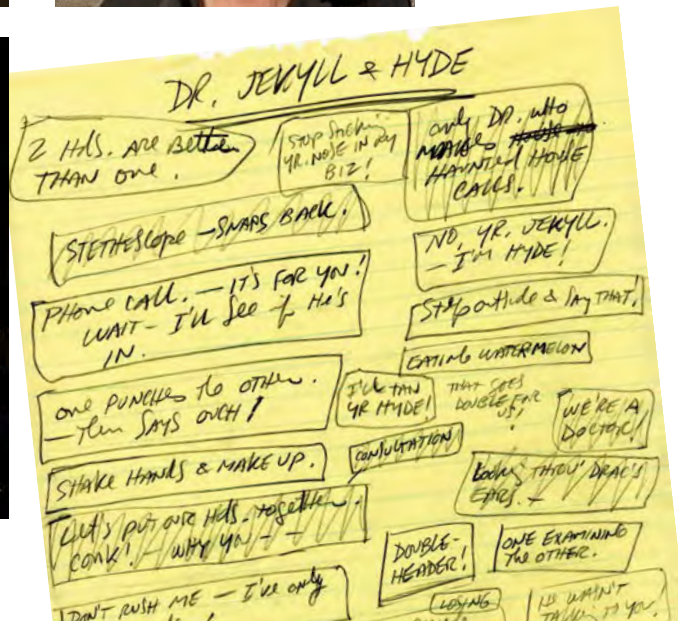 DR. JEKYLL & HYDE
2 HDS. ARE BETTER
THAN ONE.
STOP STICKIN'
YR. NOSE IN MY
BIZ!
ONLY DR. WHO
MAKES
HAUNTED HOUSE
CALLS.
STETHESCOPE - SNAPS BACK.
NO, YR. JEKYLL.
- I'M HYDE!
PHONE CALL. - IT'S FOR YOU!
WAIT - I'LL SEE IF HE'S
IN.
STEP OUTSIDE & SAY THAT!
EATING WATERMELON
ONE PUNCHES THE OTHER.
- THEN SAYS OUCH!
I'LL TAN
YR HYDE!
THAT GOES
DOUBLE FOR
US!
WE'RE A
DOCTOR!
SHAKE HANDS & MAKE UP.
CONSULTATION
LOOKING THROU' DRAC'S
EARS. -
LET'S PUT OUR HDS. TOGETHER.
CONK! - WHY YOU - -
DOUBLE-
HEADER!
ONE EXAMINING
THE OTHER.
DON'T RUSH ME - I'VE ONLY
LOSING
HE WASN'T
TALKING TO YOU!